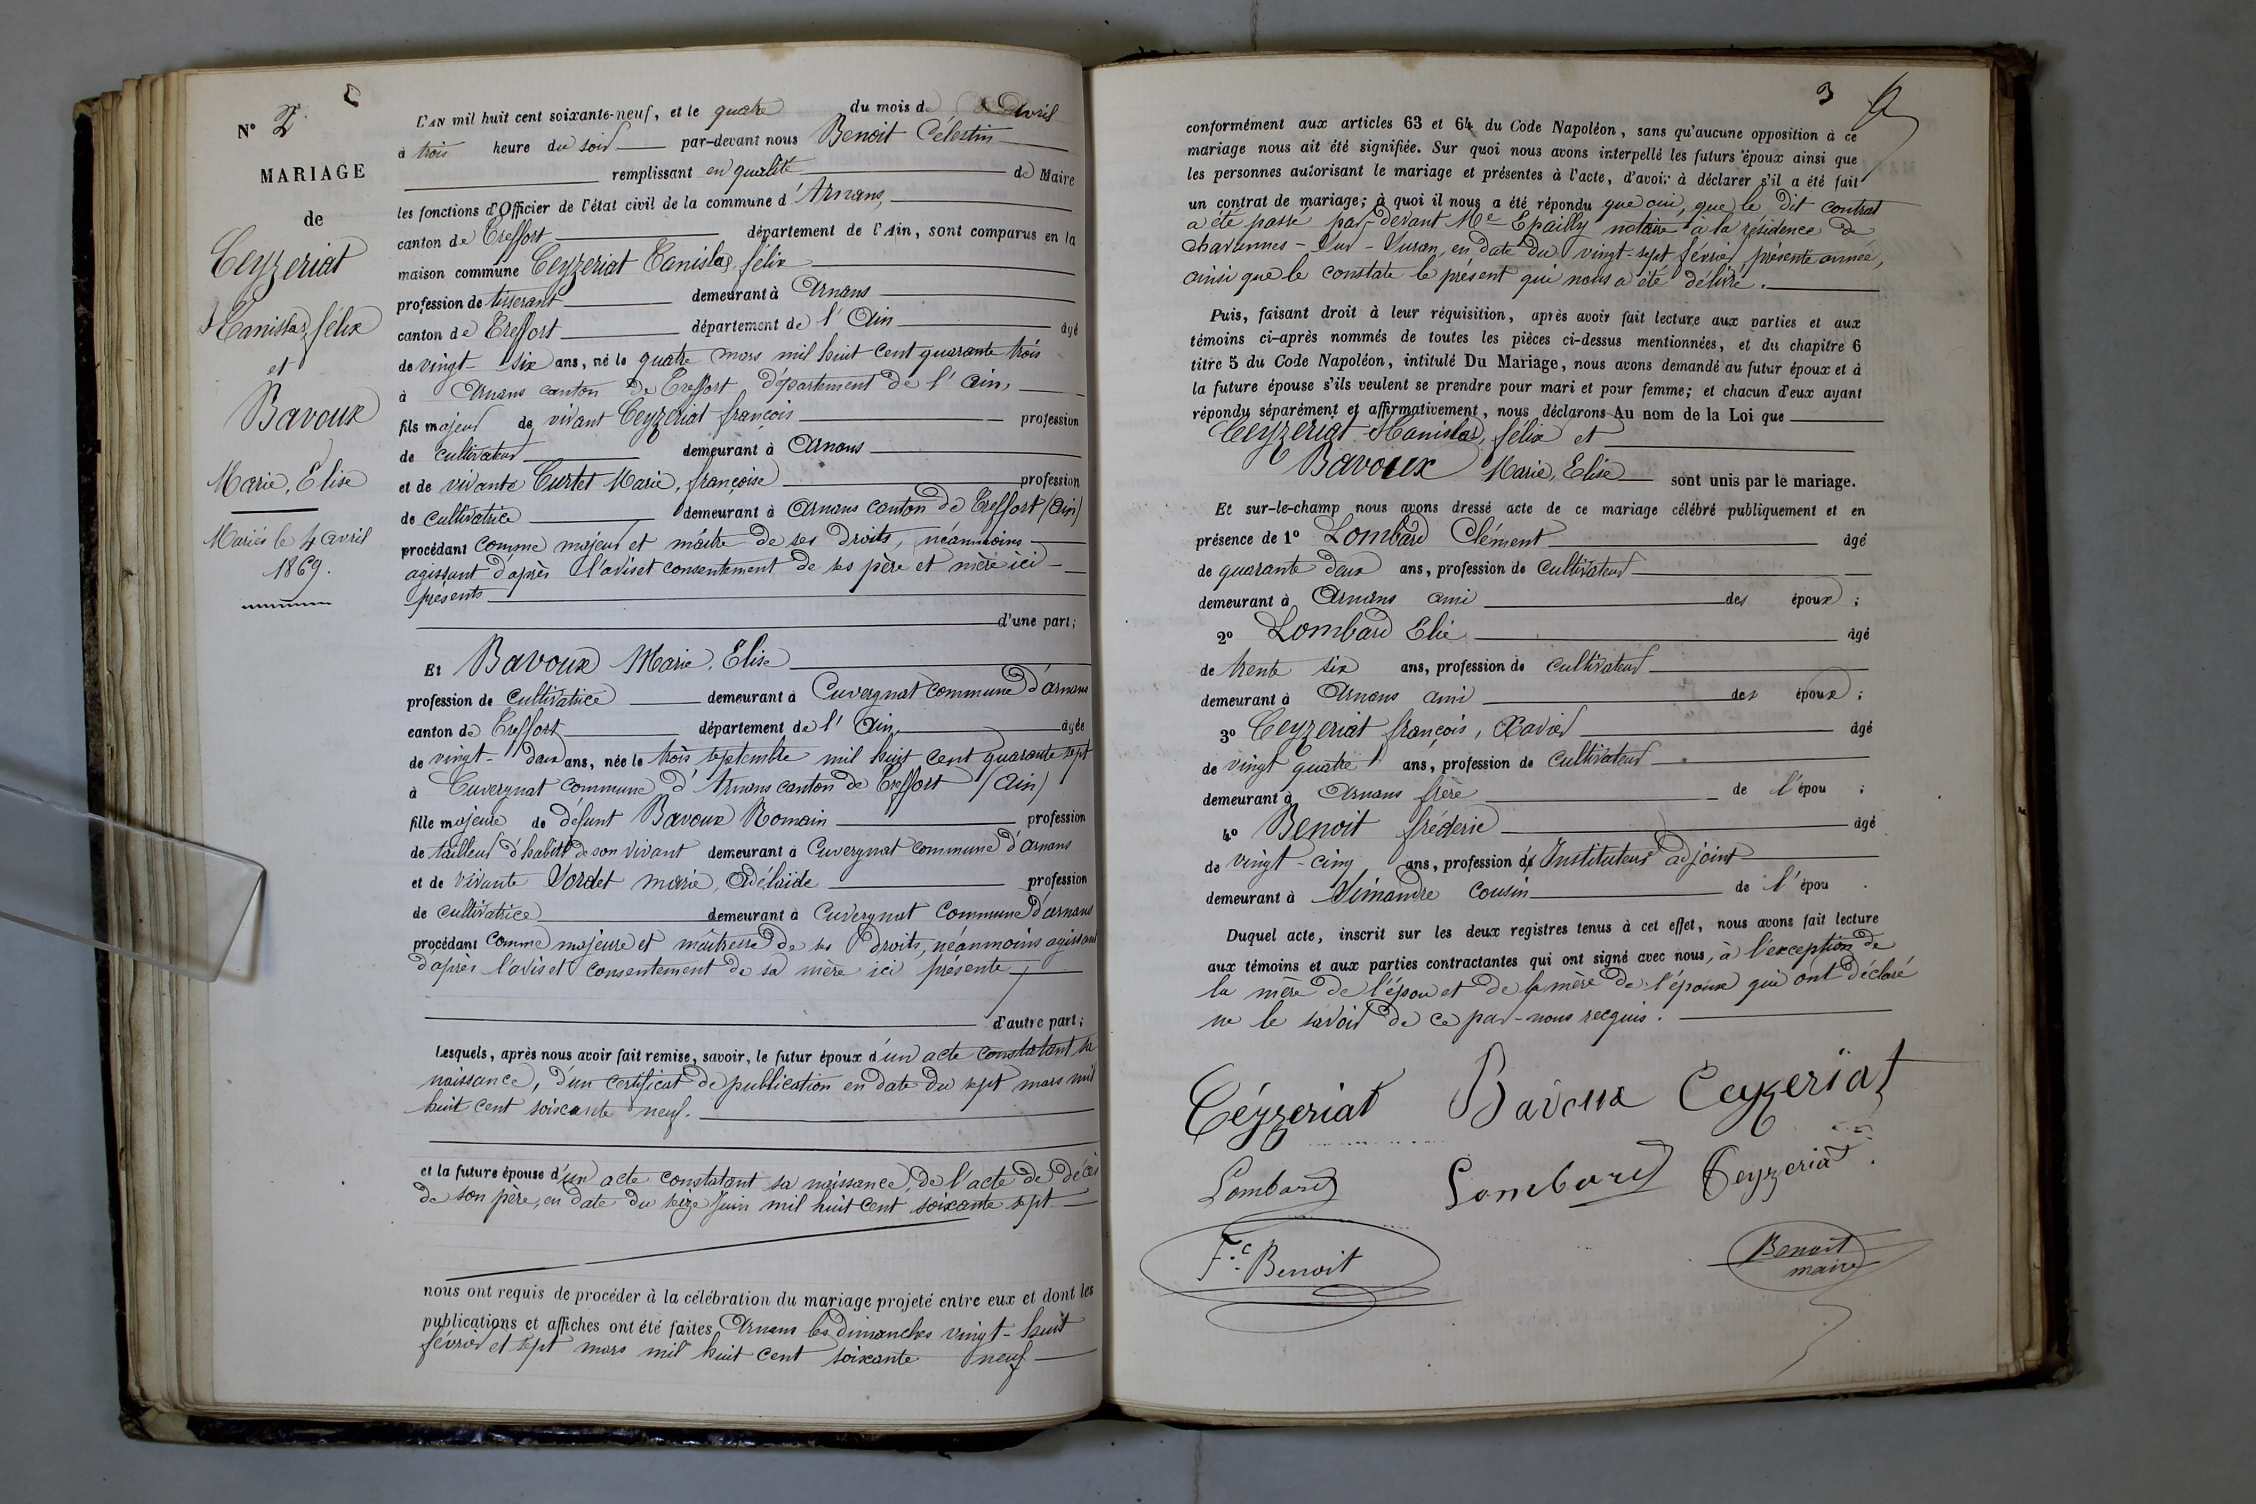 N° 2
MARIAGE
de
Ceyzeriat
Stanislas, félix
et
Bavoux
Marie, Elise
Mariés le 4 avril
1869.
L'AN mil huit cent soixante-neuf, et le quatre du mois de Avril
à trois heure du soir par-devant nous Benoit Célestin
remplissant en qualité de Maire
les fonctions d'Officier de l'état civil de la commune d'Arnans,
canton de Treffort département de l'Ain, sont comparus en la
maison commune Ceyzeriat Tanislas, félix
profession de tisserant demeurant à Arnans
canton de Treffort département de l'Ain âgé
de vingt-six ans, né le quatre mars mil huit cent quarante trois
à Arnans canton de Treffort département de l'Ain,
fils majeur de vivant Ceyzeriat françois profession
de cultivateur demeurant à Arnans
et de vivante Curtet Marie, françoise profession
de cultivatrice demeurant à Arnans canton de Treffort (Ain)
procédant comme majeur et maître de ses droits, néanmoins
agissant d'après l'avis et consentement de ses père et mère ici
présents
d'une part;
Et Bavoux Marie, Elise
profession de cultivatrice demeurant à Cuvergnat commune d'Arnans
canton de Treffort département de l'Ain, âgée
de vingt-deux ans, née le trois septembre mil huit cent quarante sept
à Cuvergnat commune d'Arnans canton de Treffort (Ain)
fille majeure de défunt Bavoux Romain profession
de tailleur d'habits de son vivant demeurant à Cuvergnat commune d'Arnans
et de vivante Sordet marie, Adélaïde profession
de cultivatrice demeurant à Cuvergnat commune d'arnans
procédant comme majeure et maitresse de ses droits, néanmoins agissant
d'après l'avis et consentement de sa mère ici présente
d'autre part;
Lesquels, après nous avoir fait remise, savoir, le futur époux d'un acte constatant sa
naissance, d'un certificat de publication en date du sept mars mil
huit cent soixante neuf.
et la future épouse d'un acte constatant sa naissance, de l'acte de décès
de son père, en date du seize Juin mil huit cent soixante sept
nous ont requis de procéder à la célébration du mariage projeté entre eux et dont les
publications et affiches ont été faites Arnans les dimanches vingt-huit
février et sept mars mil huit cent soixante neuf
3
conformément aux articles 63 et 64 du Code Napoléon, sans qu'aucune opposition à ce
mariage nous ait été signifiée. Sur quoi nous avons interpellé les futurs époux ainsi que
les personnes autorisant le mariage et présentes à l'acte, d'avoir à déclarer s'il a été fait
un contrat de mariage; à quoi il nous a été répondu que oui, que le dit contrat
a été passé par-devant Me Epailly notaire à la résidence de
chavannes-Sur-Suran, en date du vingt-sept février présente année,
ainsi que le constate le présent qui nous a été délivré.
Puis, faisant droit à leur réquisition, après avoir fait lecture aux parties et aux
témoins ci-après nommés de toutes les pièces ci-dessus mentionnées, et du chapitre 6
titre 5 du Code Napoléon, intitulé Du Mariage, nous avons demandé au futur époux et à
la future épouse s'ils veulent se prendre pour mari et pour femme; et chacun d'eux ayant
répondu séparément et affirmativement, nous déclarons Au nom de la Loi que
Ceyzeriat Stanislas, félix et
Bavoux Marie, Elise sont unis par le mariage.
Et sur-le-champ nous avons dressé acte de ce mariage célébré publiquement et en
présence de 1° Lombard Clément âgé
de quarante deux ans, profession de cultivateur
demeurant à Arnans ami des époux;
2° Lombard Elie âgé
de trente six ans, profession de cultivateur
demeurant à Arnans ami des époux;
3° Ceyzeriat françois, Xavier âgé
de vingt quatre ans, profession de cultivateur
demeurant à Arnans frère de l'épou;
4° Benoit fréderic âgé
de vingt-cinq ans, profession d'Instituteur adjoint
demeurant à Simandre cousin de l'épou.
Duquel acte, inscrit sur les deux registres tenus à cet effet, nous avons fait lecture
aux témoins et aux parties contractantes qui ont signé avec nous, à l'exception de
la mère de l'épou et de la mère de l'épouse qui ont déclaré
ne le savoir de ce par-nous recquis.
Céyzeriat Bavoux Ceyzeriat
Lombard Lombard Ceyzeriat
F.c Benoit Benoit
maire